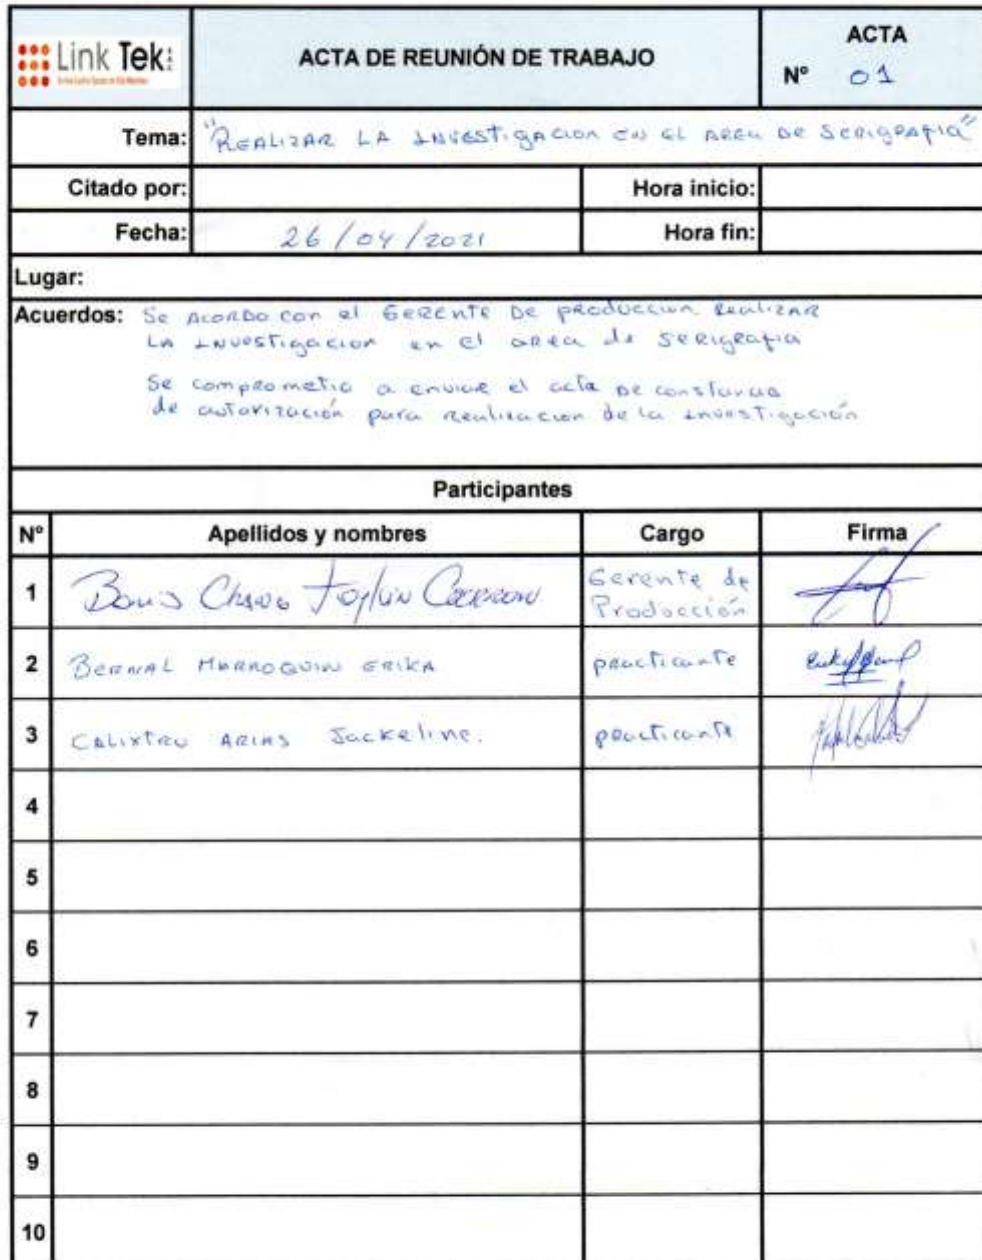 Link Tek S.A.C
ACTA DE REUNIÓN DE TRABAJO
ACTA
N° 01
Tema: "REALIZAR LA INVESTIGACION EN EL AREA DE SERIGRAFIA"
Citado por:
Hora inicio:
Fecha: 26/04/2021
Hora fin:
Lugar:
Acuerdos: Se ACORDO con el GERENTE DE produccion REALIZAR
LA INVESTIGACION en el area de SERIGRAFIA
Se comprometio a enviar el acta DE constancia
de autorización para realizacion de la investigación
Participantes
N° Apellidos y nombres Cargo Firma
1 Gerente de
Producción
2 BERNAL MARROQUIN ERIKA practicante
3 CALIXTRO ARIAS Jackeline. practicante
4
5
6
7
8
9
10